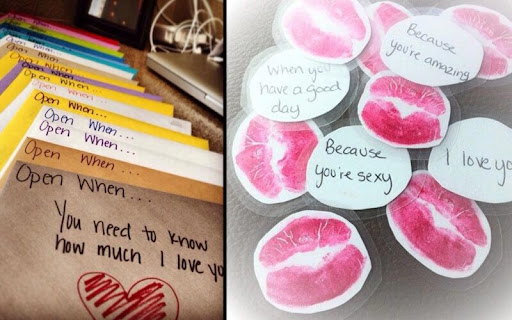 Open When...
Open When...
Open When...
Open When...
Open When...
Open When...
Open When...
Open When...
You need to know
how much I love yo
Because
you're amazing
When you
have a good
day
Because
you're sexy
I love yo